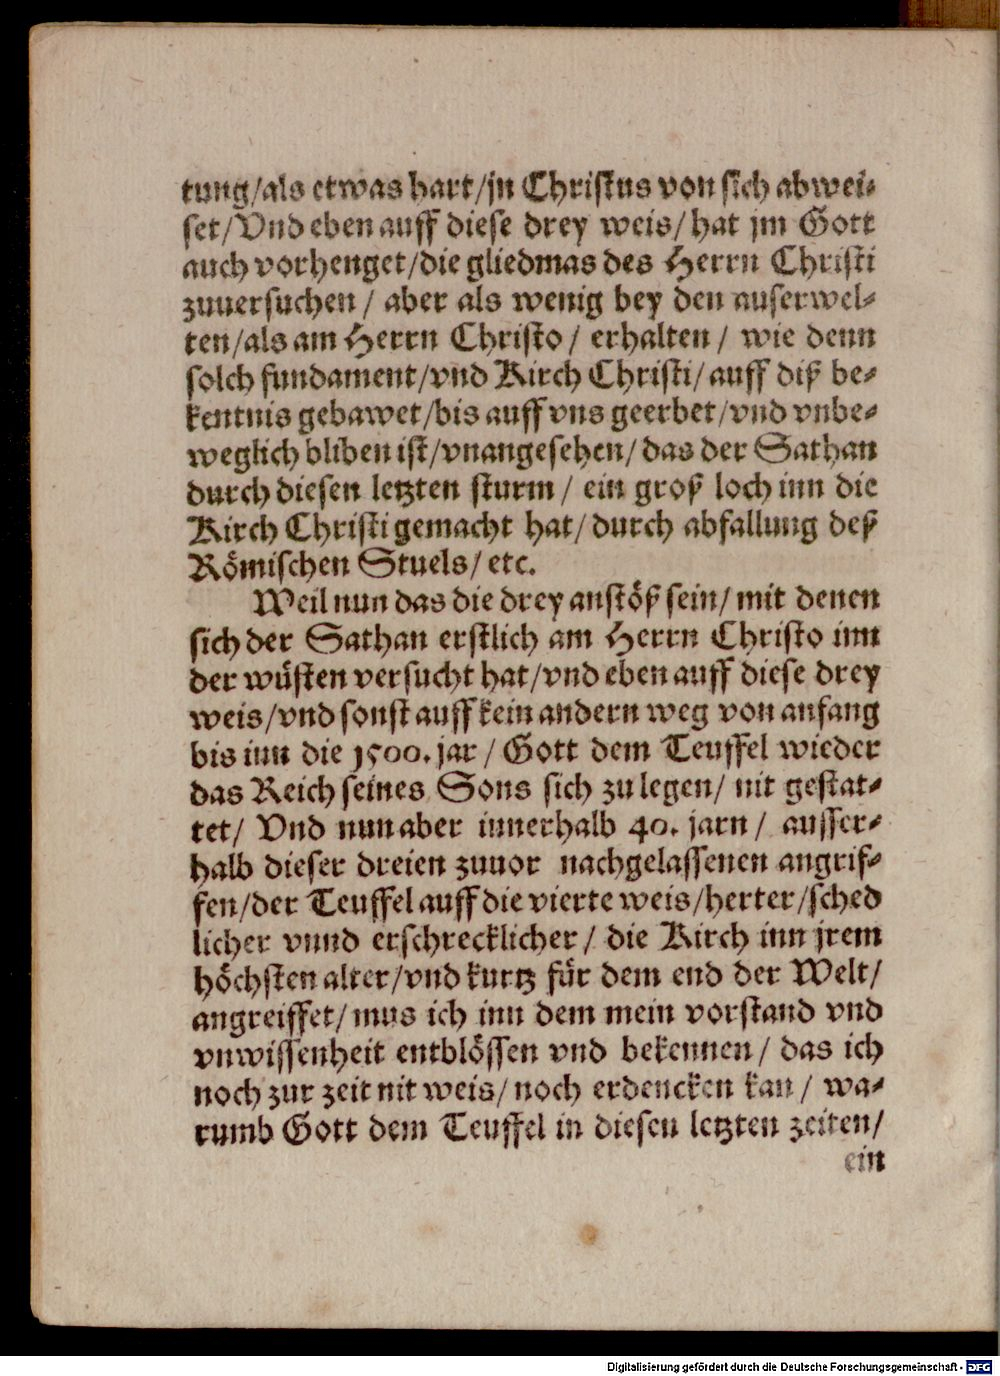 tung/als etwas hart/jn Christus von sich abwei-
set/Vnd eben auff diese drey weis/hat jm Gott
auch vorhenget/die gliedmas des Herrn Christi
zuuersuchen/ aber als wenig bey den auserwel-
ten/als am Herrn Christo/ erhalten/ wie denn
solch fundament/vnd Kirch Christi/auff diß be-
kentnis gebawet/bis auff vns geerbet/vnd vnbe-
weglich bliben ist/vnangesehen/das der Sathan
durch diesen letzten sturm/ ein groß loch inn die
Kirch Christi gemacht hat/durch abfallung deß
Römischen Stuels/ etc.
Weil nun das die drey anstöß sein/mit denen
sich der Sathan erstlich am Herrn Christo inn
der wüsten versucht hat/vnd eben auff diese drey
weis/vnd sonst auff kein andern weg von anfang
bis inn die 1500. jar/ Gott dem Teuffel wieder
das Reich seines Sons sich zu legen/ nit gestat-
tet/ Vnd nun aber innerhalb 40. jarn/ ausser-
halb dieser dreien zuuor nachgelassenen angrif-
fen/der Teuffel auff die vierte weis/herter/sched
licher vnnd erschrecklicher/ die Kirch inn jrem
höchsten alter/vnd kurtz für dem end der Welt/
angreiffet/mus ich inn dem mein vorstand vnd
vnwissenheit entblössen vnd bekennen/ das ich
noch zur zeit nit weis/noch erdencken kan/ wa-
rumb Gott dem Teuffel in diesen letzten zeiten/
ein
Digitalisierung gefördert durch die Deutsche Forschungsgemeinschaft - DFG